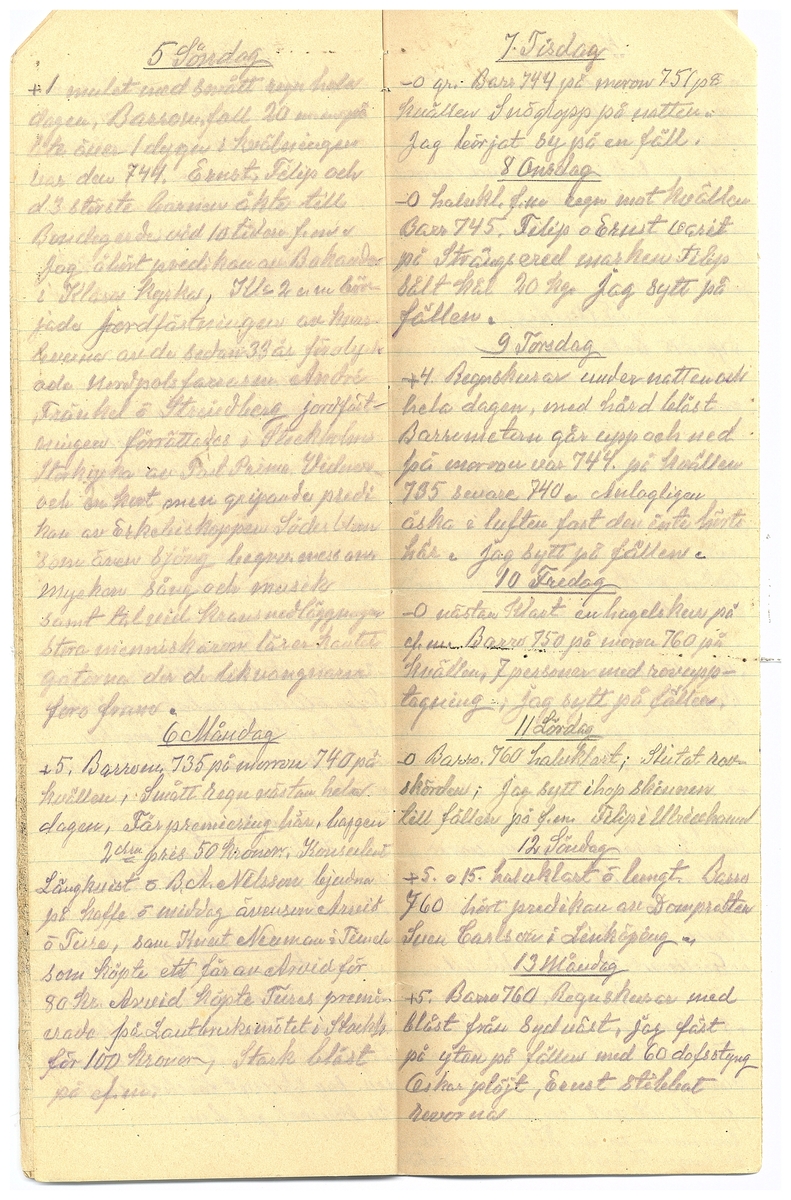 5 Söndag
+1 mulet med smått regn hela
dagen, Barrom. fall 20 m.m. på
över 1 dygn i kvälningen
var den 744. Ernst, Filip och
d 3 största barnen åkte till
Bondegärde vid 10 tiden f.m.
Jag åhört predikan av Bokander
i Klara Kyrka, Kl 2 e.m bör-
jade jordfästningen av kvar-
levorna av de sedan 33 år förolyck-
ade Nordpolsfararna André
Fränkel ō Strindberg jordfäst-
ningen förrättades i Stockholms
Storkyrka av Past. Prima. Widner
och en kort men gripande predi
kan av Erkebiskoppen Söderblom
som även sjöng begrav. messan
myckem sång och musek
samt tal vid kransnedläggningen
stora menniskor lärer kantat
gatorna der de likvangnarna
foro fram.
6 Måndag
+5. Barrom. 735 på morron 740 på
kvällen, Smått regn nästan hela
dagen, Fårpremiering här, baggen
2dra pris 50 kronor. Konsulent
Långkvist ō B.A. Nilsson bjudna
på kaffe ō middag ävensom Arvid
ō Ture, sam Knut Neuman i Timele
som köpte ett får av Arvid för
80 kr. Arvid köpte Tures premi-
erade på Lantbruksmötet i Stockh.
för 100 kronor, Stark blåst
på e.m.
7. Tisdag
-0 gr. Barr 744 på moron 751 på
kvällen Snöglopp på natten.
Jag börjat sy på en fäll.
8 Onsdag
-0 halvkl. f.m regn mot kvällen
Barr 745. Filip o Ernst varit
på Strängsered marken Filip
sålt 20 kg. Jag sytt på
fällen.
9 Torsdag
+4. Regnskurar under natten och
hela dagen, med hård blåst
Barrometern går upp och ned
på morron var 744. på kvällen
735 senare 740. Antagligen
åska i luften fast den ente hörts
här. Jag sytt på fällen.
10 Fredag
-0 nästan Klart en hagelskur på
e.m. Barro 750 på moron 760 på
kvällen, 7 personer med rovupp-
tagning, jag sytt på fällen.
11 Lördag
-0 Barro. 760 halvklart; Slutat rov-
skörden; jag sytt ihop skinnen
till fällen på f.m. Filip i Ulricehamn
12 Söndag
+5. o 15. halvklart ō lungt. Barro
760 hört predikan av Domprosten
Sven Carlson i Linköping.
13 Måndag
+5. Barro 760 Regnskurar med
blåst från sydväst, jag fäst
på ytan på fällen med 60 dofsstyng
Oskar plöjt, Ernst stibbat
rovorna